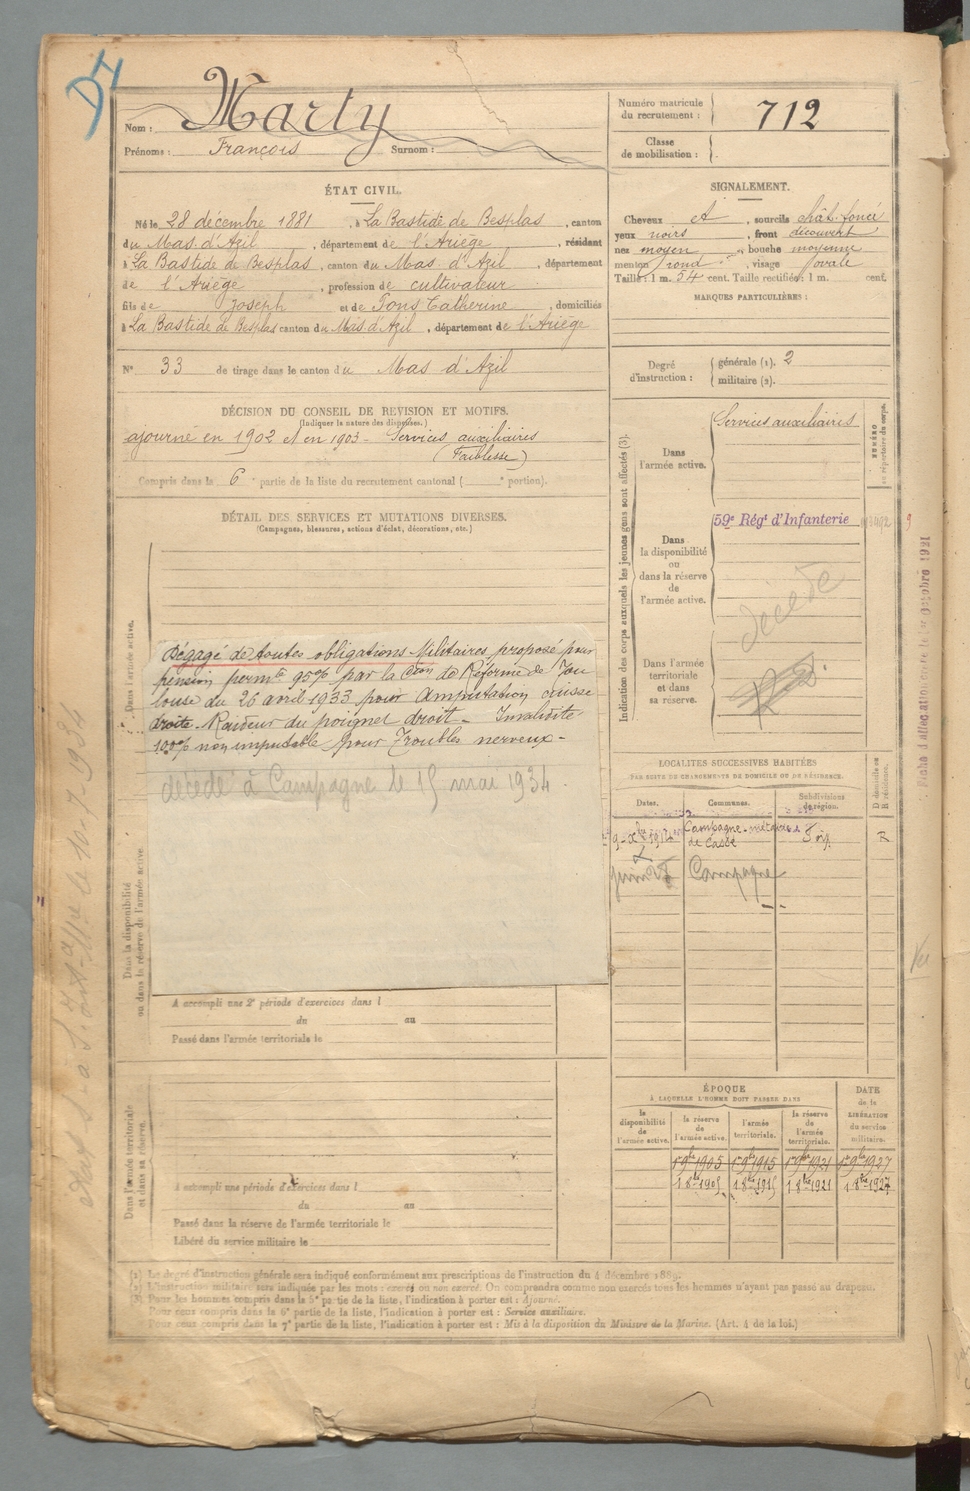 D4
Nom : Marty
Prénoms : François Surnom :
Numéro matricule du recrutement : 712
Classe de mobilisation :
ÉTAT CIVIL.
Né le 28 décembre 1881, à La Bastide de Besplas, canton
du Mas d'Azil, département de l'Ariège, résidant
à La Bastide de Besplas, canton du Mas d'Azil, département
de l'Ariège, profession de cultivateur
fils de Joseph et de Pons Catherine, domiciliés
à La Bastide de Besplas canton du Mas d'Azil, département de l'Ariège
N° 33 de tirage dans le canton du Mas d'Azil
SIGNALEMENT.
Cheveux et, sourcils chât. foncé
yeux noirs, front découvert
nez moyen, bouche moyenne
menton rond, visage ovale
Taille : 1 m. 54 cent. Taille rectifiée : 1 m. cent.
MARQUES PARTICULIÈRES :
Degré d'instruction : générale (1). 2
militaire (2).
DÉCISION DU CONSEIL DE REVISION ET MOTIFS.
(Indiquer la nature des dispenses.)
ajourné en 1902 et en 1903 - Services auxiliaires
(Faiblesse)
Compris dans la 6e partie de la liste du recrutement cantonal ( e portion).
DÉTAIL DES SERVICES ET MUTATIONS DIVERSES.
(Campagnes, blessures, actions d'éclat, décorations, etc.)
Dans l'armée active.
Dégagé de toutes obligations Militaires, proposé pour
pension permte 95% par la Cion de Réforme de Tou
louse du 26 avril 1933 pour Amputation cuisse
droite. Raideur du poignet droit - Invalidité
100% non imputable pour Troubles nerveux -
décédé à Campagne le 15 mai 1934.
Dans la disponibilité ou dans la réserve de l'armée active.
A accompli une 2e période d'exercices dans l
du au
Passé dans l'armée territoriale le
Dans l'armée territoriale et dans sa réserve.
A accompli une période d'exercices dans l
du au
Passé dans la réserve de l'armée territoriale le
Libéré du service militaire le
Indication des corps auxquels les jeunes gens sont affectés (3).
NUMÉRO au répertoire du corps.
Dans l'armée active. Services auxiliaires
Dans la disponibilité ou dans la réserve de l'armée active. 59e Régt d'Infanterie
décédé
Dans l'armée territoriale et dans sa réserve.
LOCALITÉS SUCCESSIVES HABITÉES
PAR SUITE DE CHANGEMENTS DE DOMICILE OU DE RÉSIDENCE.
Dates. Communes. Subdivisions de région. D domicile ou R résidence.
Campagne
de Casse
R
Campagne
Vu
ÉPOQUE
À LAQUELLE L'HOMME DOIT PASSER DANS
DATE de la LIBÉRATION du service militaire.
la disponibilité de l'armée active. la réserve de l'armée active. l'armée territoriale. la réserve de l'armée territoriale.
1 9bre 1905 1 9bre 1915 1 9bre 1921 1 9bre 1927
1 8bre 1905 1 8bre 1915 1 8bre 1921 1 8bre 1927
(1) Le degré d'instruction générale sera indiqué conformément aux prescriptions de l'instruction du 4 décembre 1889.
(2) L'instruction militaire sera indiquée par les mots : exercé ou non exercé. On comprendra comme non exercés tous les hommes n'ayant pas passé au drapeau.
(3) Pour les hommes compris dans la 5e partie de la liste, l'indication à porter est : Ajourné.
Pour ceux compris dans la 6e partie de la liste, l'indication à porter est : Service auxiliaire.
Pour ceux compris dans la 7e partie de la liste, l'indication à porter est : Mis à la disposition du Ministre de la Marine. (Art. 4 de la loi.)